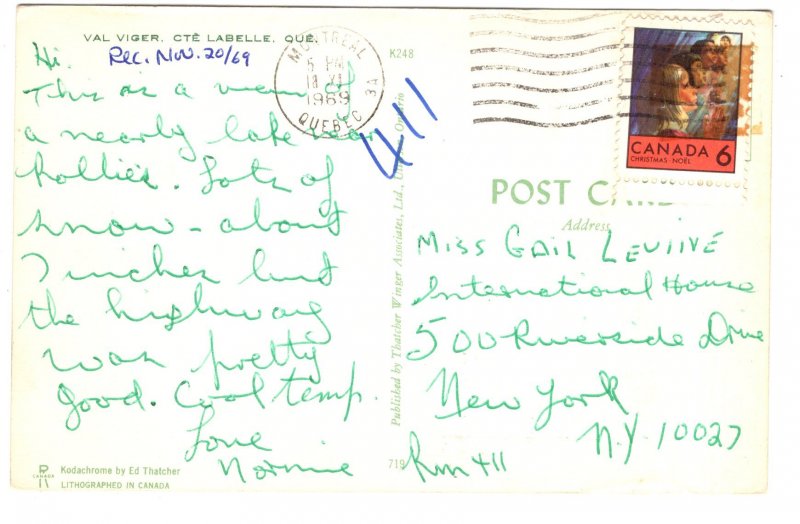 VAL VIGER, CTÉ LABELLE, QUÉ.
Rec. Nov. 20/69
Hi.
This is a view of
a nearly lake near
Rollies. Lots of
snow - about
7 inches but
the highway
was pretty
good. Cool temp.
Love
Normie
Kodachrome by Ed Thatcher
LITHOGRAPHED IN CANADA
R
CANADA
K248
MONTREAL
5 PM
18 XI
1969
QUEBEC 3A
411
Published by Thatcher Winger Associates, Ltd., Ontario
719
CANADA 6
CHRISTMAS NOËL
POST CARD
Address
MISS GAIL LEVINE
International House
500 Riverside Drive
New York
N.Y. 10027
Rm 411